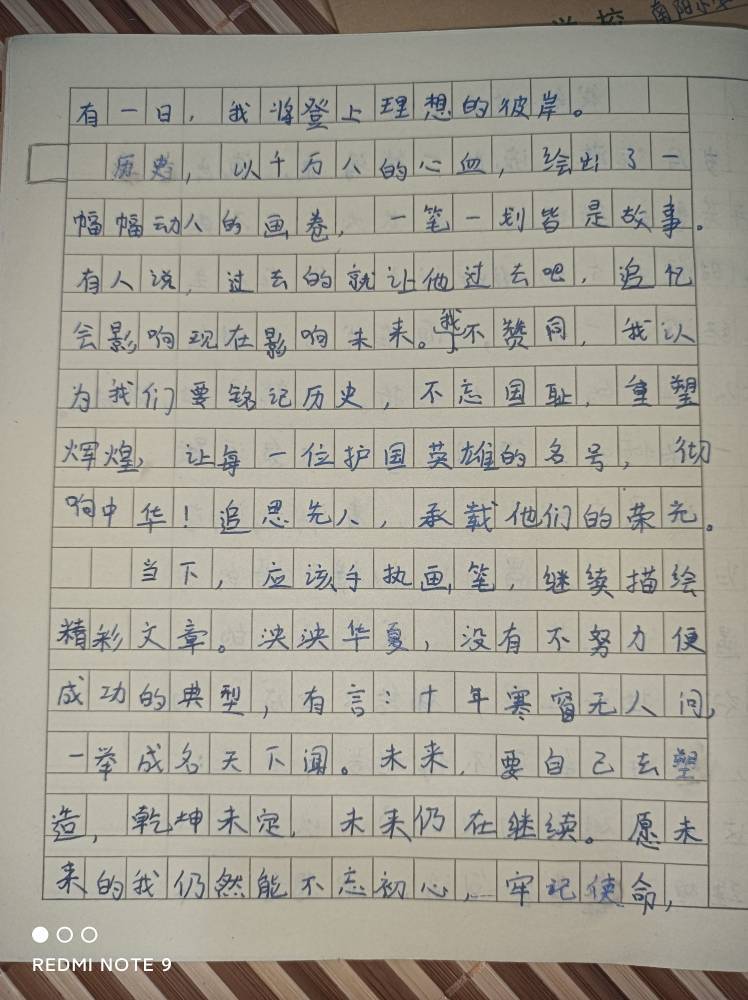 学校 南阳
有一日，我将登上理想的彼岸。
历史，以千万人的心血，绘出了一
幅幅动人的画卷，一笔一划皆是故事。
有人说，过去的就让他过去吧，追忆
会影响现在影响未来。我不赞同，我认
为我们要铭记历史，不忘国耻，重塑
辉煌，让每一位护国英雄的名号，彻
响中华！追思先人，承载他们的荣光。
当下，应该手执画笔，继续描绘
精彩文章。泱泱华夏，没有不努力便
成功的典型，有言：十年寒窗无人问，
一举成名天下闻。未来，要自己去塑
造，乾坤未定，未来仍在继续。愿未
来的我仍然能不忘初心，牢记使命，
REDMI NOTE 9